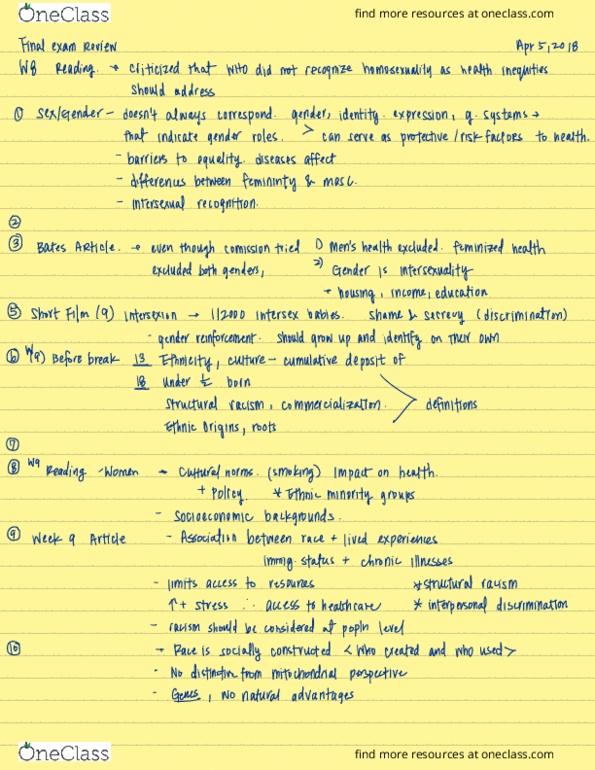 OneClass
find more resources at oneclass.com
Final exam Review Apr 5, 2018
W8 Reading. → criticized that WHO did not recognize homosexuality as health inequities
should address
① Sex/Gender - doesn't always correspond. gender, identity. expression, g. systems →
that indicate gender roles. > can serve as protective / risk factors to health.
- barriers to equality. diseases affect
- differences between femininty & masc.
- Intersexual recognition.
②
③ Bates Article. → even though comission tried 1) Men's health excluded. feminized health
excluded both genders, 2) Gender is intersexuality
→ housing, income, education
⑤ Short Film (9) Intersexion → 1/2000 Intersex babies. shame & secrecy (discrimination)
- gender reinforcement. should grow up and identify on their own
⑥ W9) Before break 13 Ethnicity, culture - cumulative deposit of
18 Under ½ born
Structural racism, commercialization. > definitions
Ethnic Origins, roots
⑦
⑧ W9 Reading - Women → Cultural norms. (smoking) Impact on health.
+ Policy * Ethnic minority groups
- Socioeconomic backgrounds.
⑨ Week 9 Article - Association between race + lived experiences
immig. status + chronic illnesses
- limits access to resources * structural racism
↑ + stress ∴ access to healthcare * interpersonal discrimination
- racism should be considered at popln level
⑩ → Race is socially constructed < Who created and who used >
- No distinction from mitochondrial perspective
- Genes, No natural advantages
OneClass
find more resources at oneclass.com